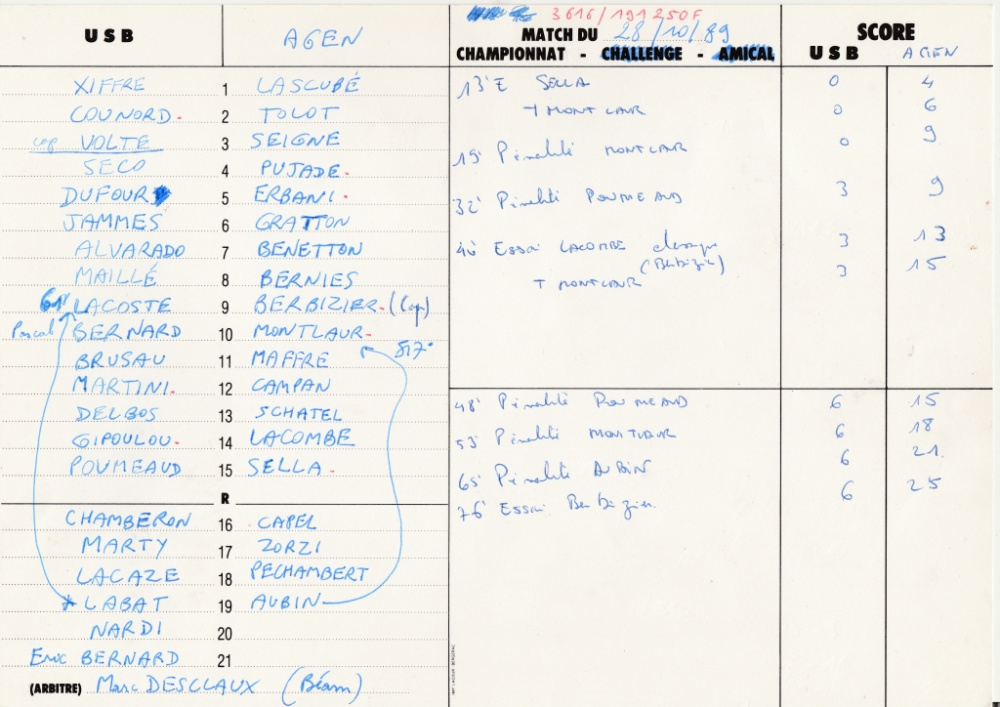 USB AGEN
XIFFRE 1 LASCUBÉ
COUNORD. 2 TOLOT
cap VOLTE 3 SEIGNE
SECO 4 PUJADE.
DUFOUR 5 ERBANI.
JAMMES 6 GRATTON
ALVARADO 7 BENETTON
MAILLÉ 8 BERNIES
61' LACOSTE 9 BERBIZIER. (Cap)
Pascal BERNARD 10 MONTLAUR.
BRUSAU 11 MAFFRE
MARTINI. 12 CAMPAN
DELBOS 13 SCHATEL
GIPOULOU. 14 LACOMBE
POUMEAUD 15 SELLA.
R
CHAMBERON 16 CAPEL
MARTY 17 ZORZI
LACAZE 18 PECHAMBERT
* LABAT 19 AUBIN
NARDI 20
Eric BERNARD 21
(ARBITRE) Marc DESCLAUX (Béarn)
3616/191250F
MATCH DU 28/10/89
CHAMPIONNAT - CHALLENGE - AMICAL
SCORE
USB AGEN
13' E SELLA 0 4
T MONTLAUR 0 6
19' Pénalité MONTLAUR 0 9
32' Pénalité POUMEAUD 3 9
40' Essai LACOMBE 3 13
(Berbizier)
T MONTLAUR 3 15
48' Pénalité POUMEAUD 6 15
53' Pénalité MONTLAUR 6 18
65' Pénalité AUBIN 6 21
76' Essai Berbizier. 6 25